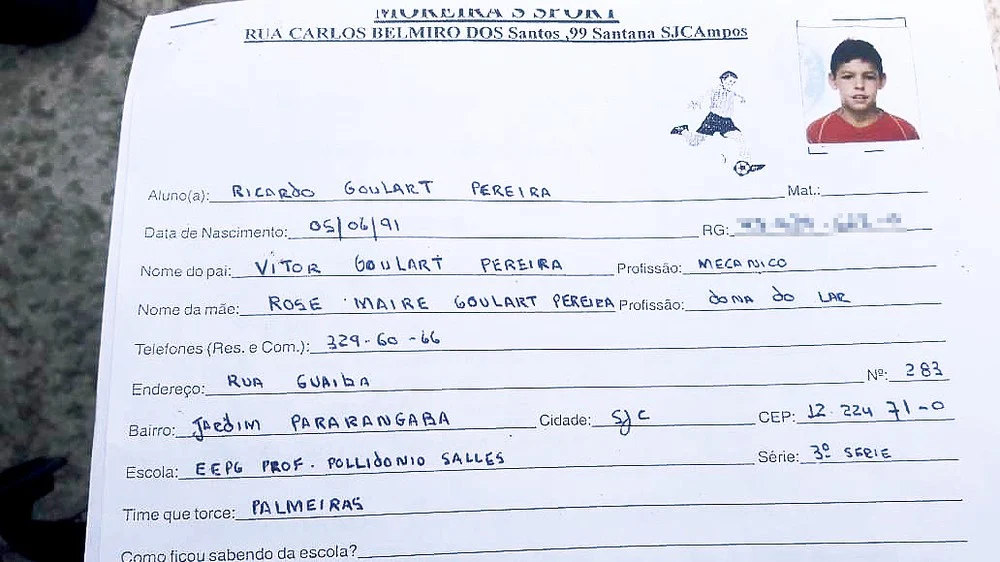 MOREIRA'S SPORT
RUA CARLOS BELMIRO DOS Santos ,99 Santana SJCAmpos
Aluno(a): RICARDO GOULART PEREIRA Mat.:
Data de Nascimento: 05/06/91 RG:
Nome do pai: VITOR GOULART PEREIRA Profissão: MECANICO
Nome da mãe: ROSE MAIRE GOULART PEREIRA Profissão: DONA DO LAR
Telefones (Res. e Com.): 329-60-66
Endereço: RUA GUAIBA Nº: 283
Bairro: JARDIM PARARANGABA Cidade: SJC CEP: 12.224 71-0
Escola: EEPG PROF. POLLIDONIO SALLES Série: 3º SERIE
Time que torce: PALMEIRAS
Como ficou sabendo da escola?